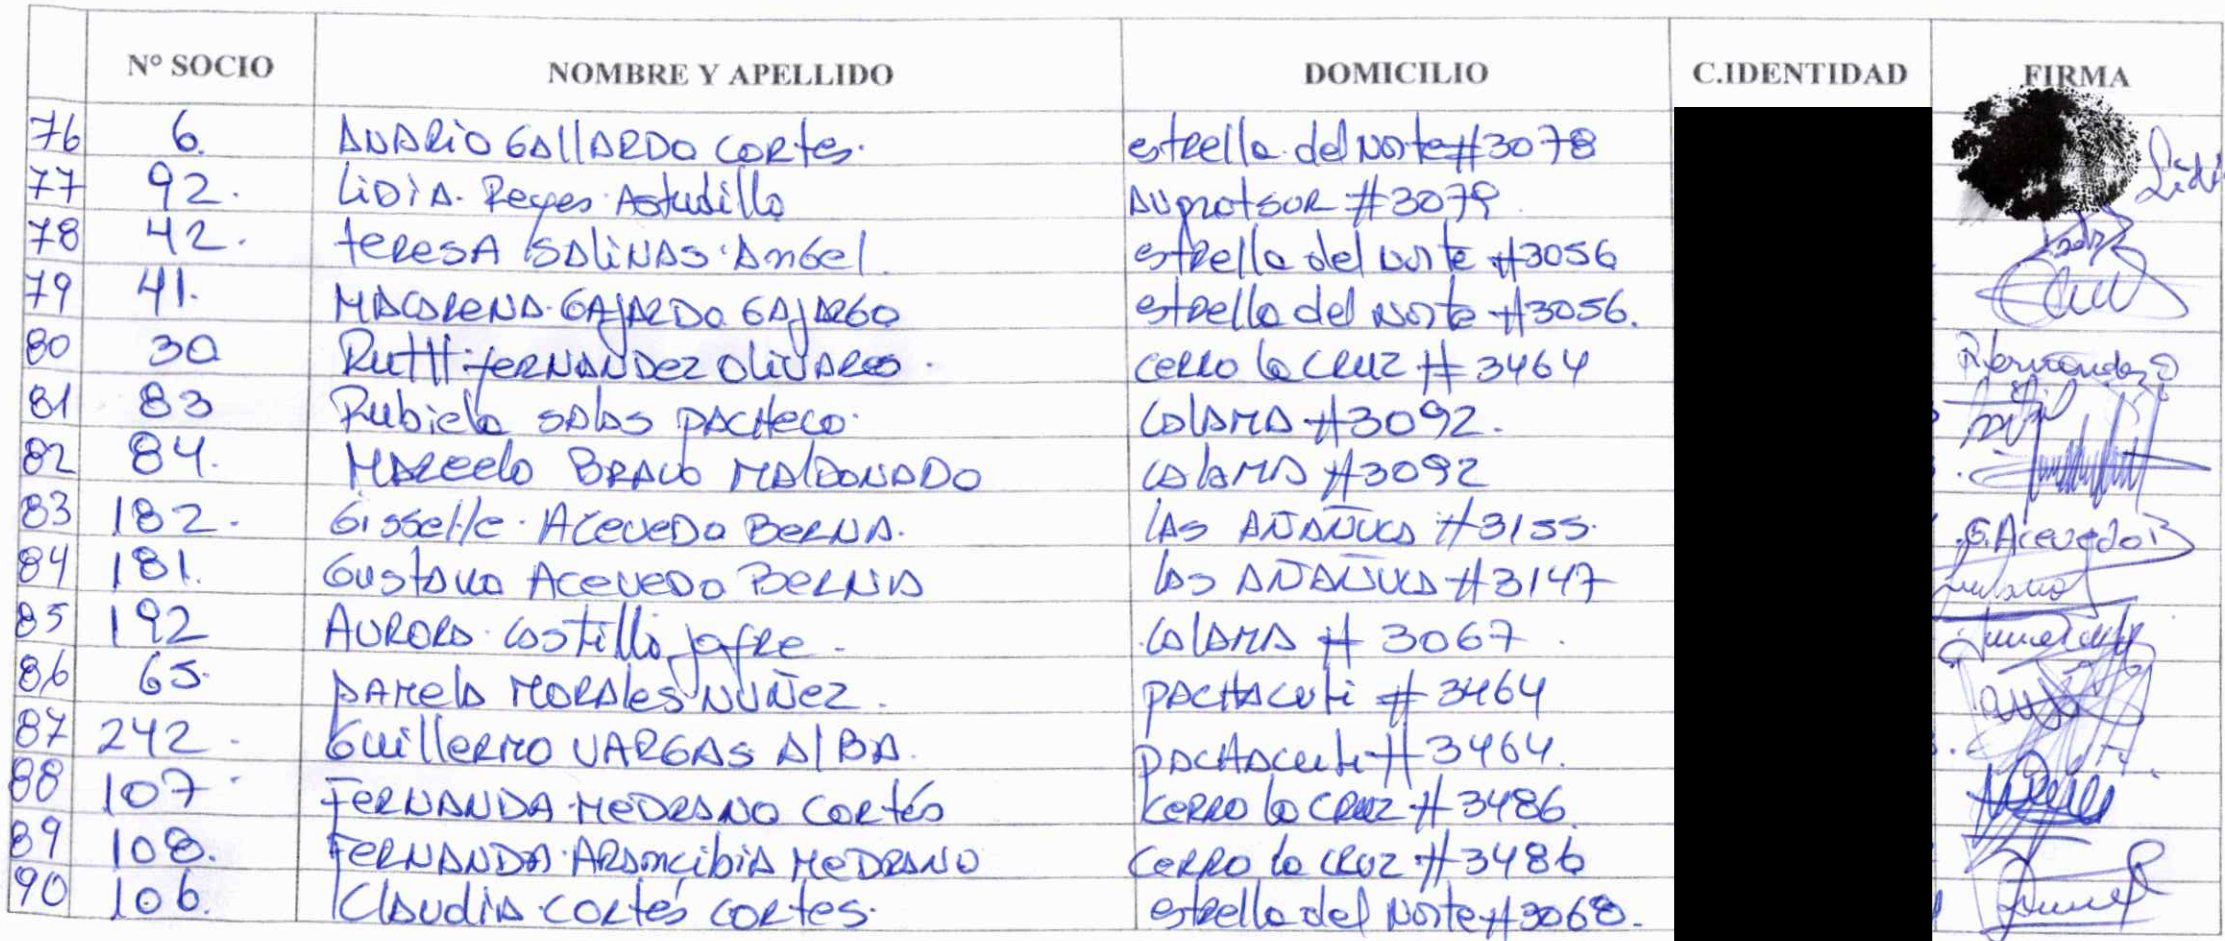 N° SOCIO NOMBRE Y APELLIDO DOMICILIO C.IDENTIDAD FIRMA
76 6. ANARIO GALLARDO CORtes. estRella del Norte #3078
77 92. LiDiA. Reyes Astudillo AV prot SUR #3079 Lidi
78 42. teResA SALiNAS ANGel estRella del Norte #3056
79 41. MACARENA GAJARDO GAJARGO estRella del Norte #3056.
80 30 RutH feRNANDez OliVARes. ceRRo la CRUZ #3464 R. fernandez O
81 83 Rubiela SALAS PACHeco. CALAMA #3092.
82 84. MARCelo BRAVO MALDONADO CALAMA #3092
83 182. Gisselle. ACeVeDo BeRNA. lAS AÑAÑUCA #3155. G. Acevedo B
84 181. GustAVo ACeVeDo BeRNA lAS AÑAÑUCA #3147
85 192 AURORA CAStillo jofRe. CALAMA #3067.
86 65. PAMelA MORAles NUÑez. PACHACuti #3464
87 242. Guillermo VARGAS AlBA. PACHACuti #3464.
88 107 FeRNANDA MeDRANO CoRtés CeRRo la CRUZ #3486.
89 108. FeRNANDA ARAncibiA MeDRANO CeRRo la CRUZ #3486
90 106. ClAudiA CoRtés CoRtes. estRella del Norte #3068.